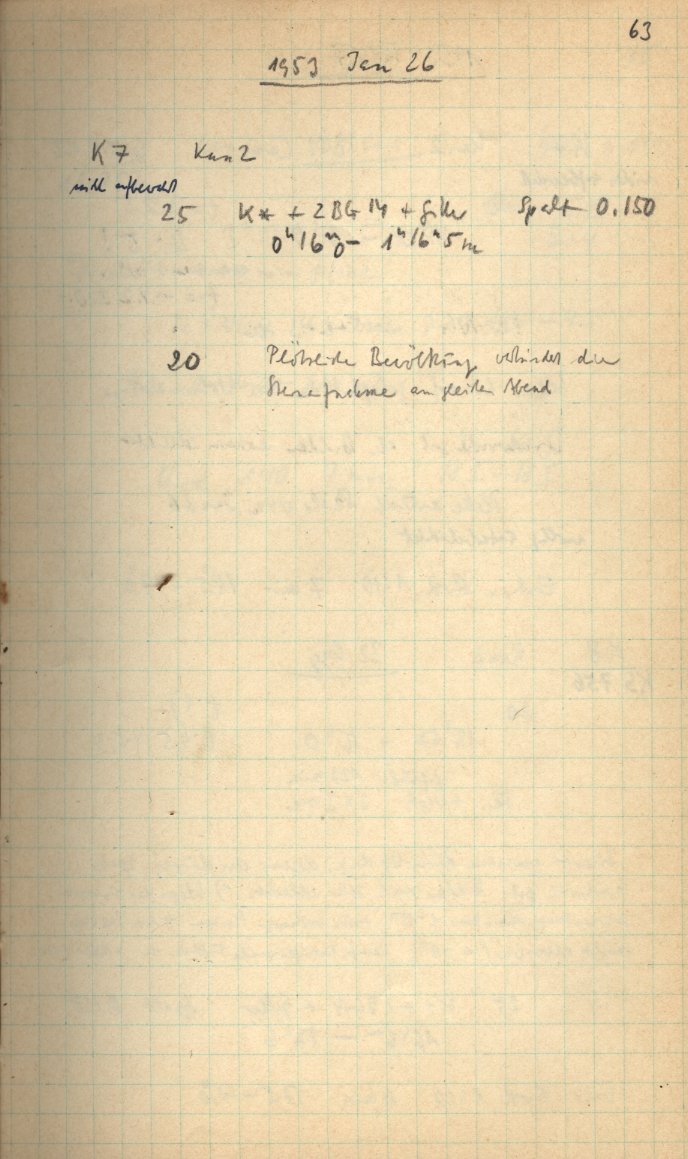 63
1953 Jan 26
K7 Kam 2
nicht aufbewahrt
25 K* + 2BG 14 + Gitter Spalt 0.150
0ʰ16ᵐ0 – 1ʰ16ᵐ5 m
20 Plötzliche Bewölkung verhindert die
Sternaufnahme am gleichen Abend